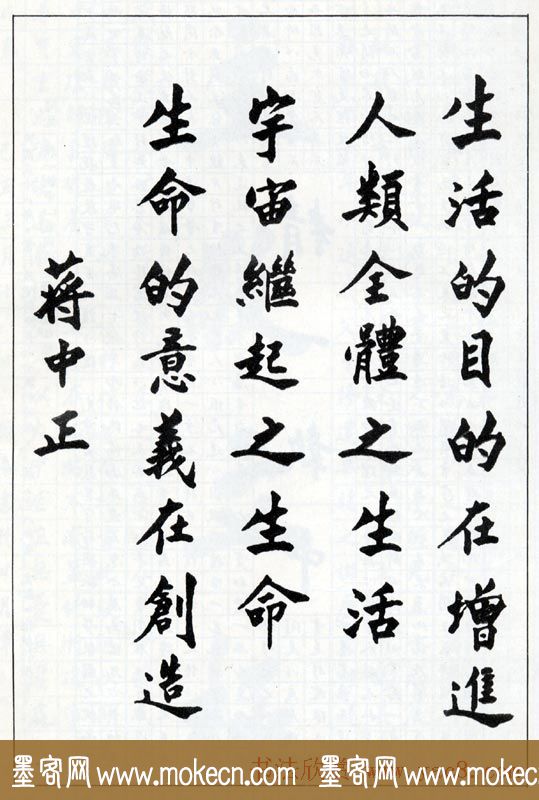 生活的目的在增進
人類全體之生活
生命的意義在創造
宇宙繼起之生命
蔣中正
墨客网 www.mokecn.com 墨客网 www.mokecn.com
书法欣